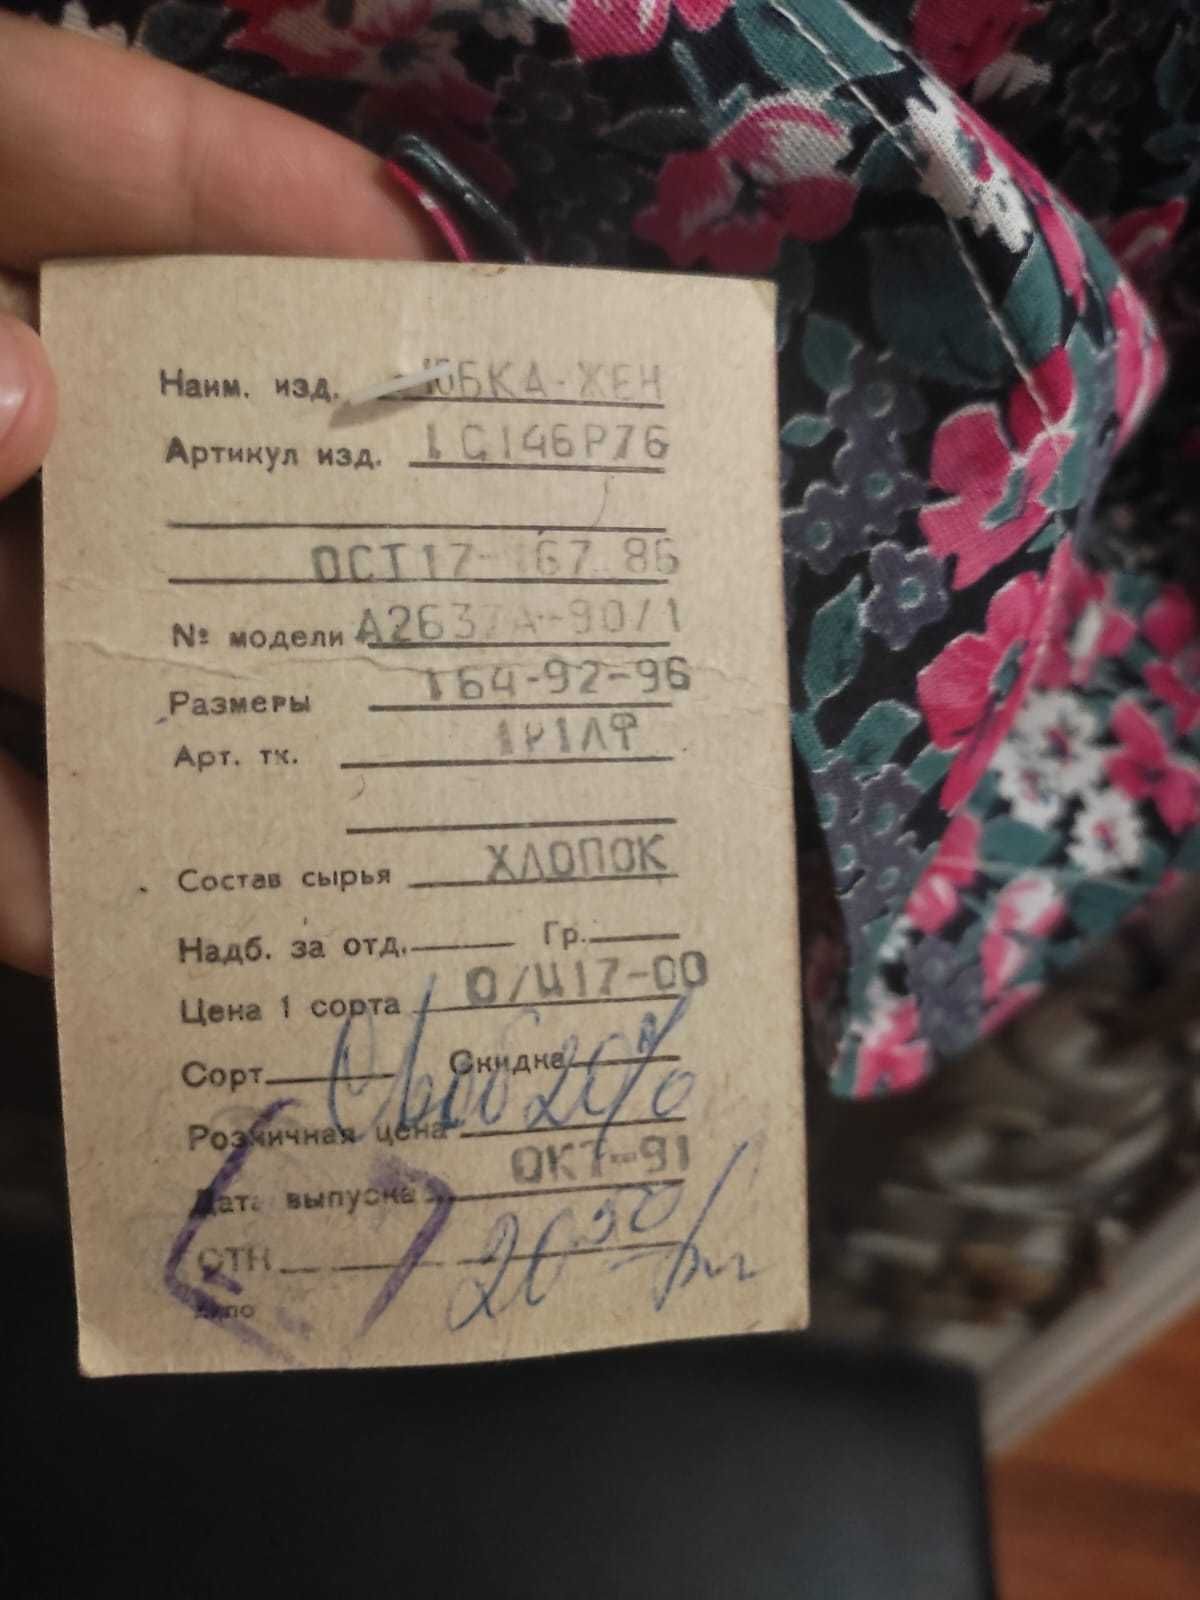 Наим. изд. ЮБКА-ЖЕН
Артикул изд. 1С146Р76
ОСТ17-167 86
№ модели А2637А-90/1
Размеры 164-92-96
Арт. тк.
Состав сырья ХЛОПОК
Надб. за отд. Гр.
Цена 1 сорта О/Ц17-00
Сорт Скидка
20%
Розничная цена
Дата выпуска ОКТ-91
20 50
ОТК